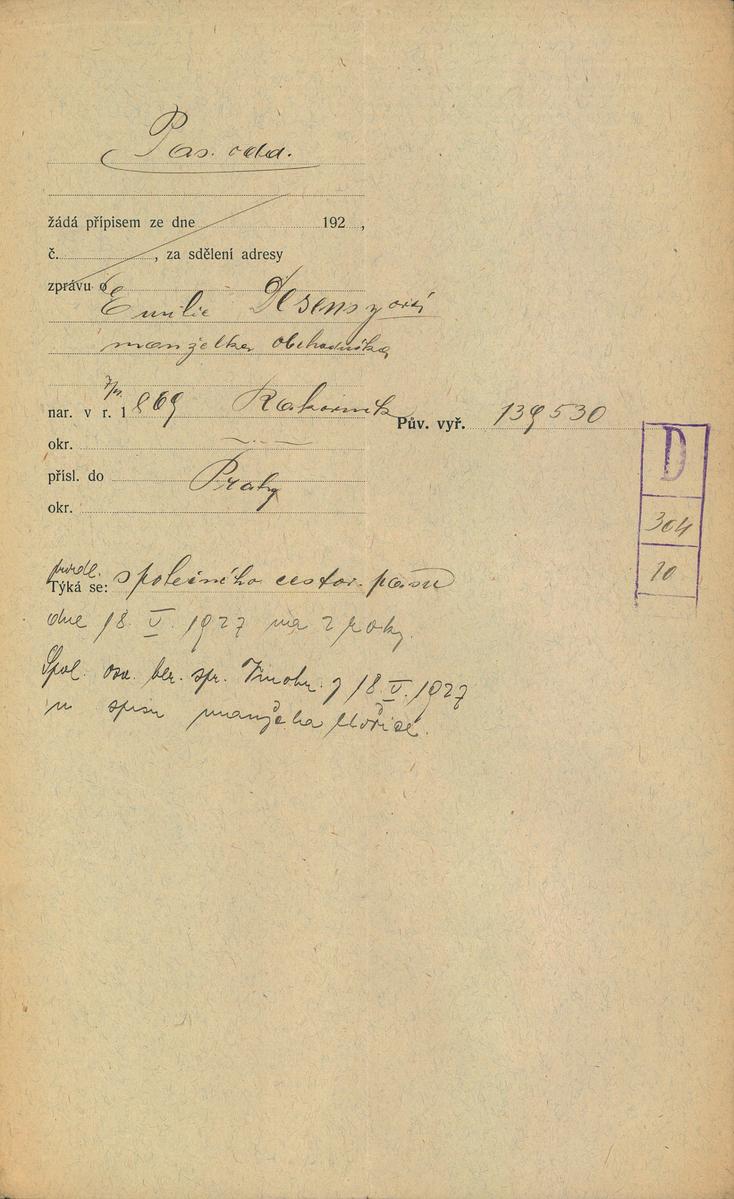 Pas. odd.
žádá přípisem ze dne 192 ,
č. , za sdělení adresy
zprávu o
Emilie
manželka obchodníka
nar. v r. 1869 Rakovník
Pův. vyř. 139530
okr.
přísl. do Prahy
okr.
D
304
10
Týká se: společného cestov. pasu
dne 18. V. 1927 na 2 roky.
Spol. osv. ber. spr. z 18. V. 1927
u spisu manžela Mořice.